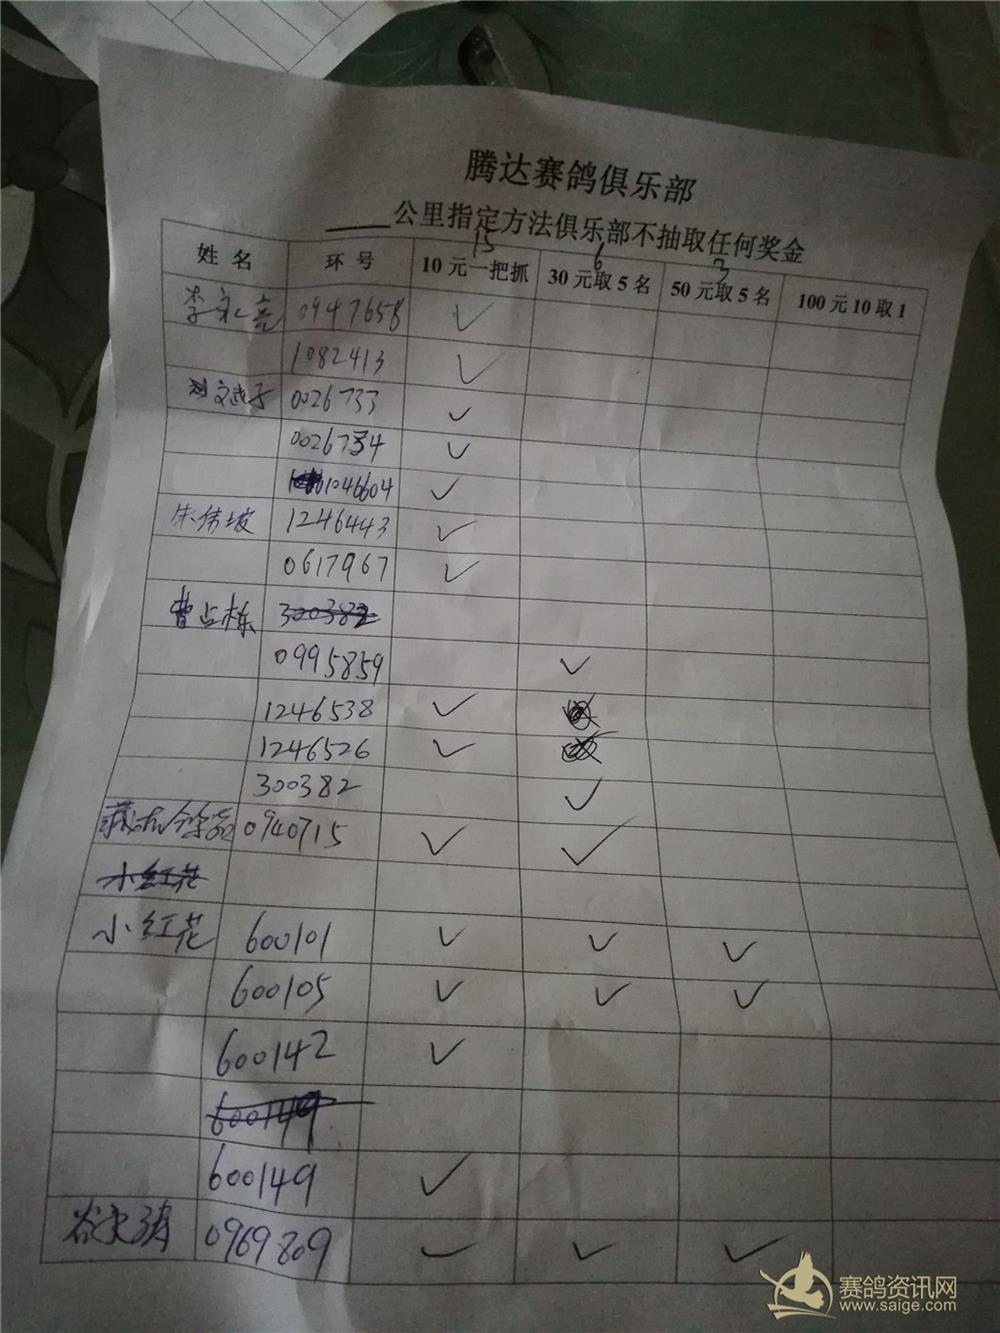 腾达赛鸽俱乐部
____公里指定方法俱乐部不抽取任何奖金
15 6 3
姓名 环号 10元一把抓 30元取5名 50元取5名 100元10取1
李永亮 0947658 ✓
1082413 ✓
0026733 ✓
0026734 ✓
1046604 ✓
朱伟坡 1246443 ✓
0617967 ✓
曹占栋 300382
0995859 ✓
1246538 ✓
1246526 ✓
300382 ✓
0940715 ✓ ✓
小红花
小红花 600101 ✓ ✓ ✓
600105 ✓ ✓ ✓
600142 ✓
600149
600149 ✓
0969809 ✓ ✓ ✓
赛鸽资讯网
www.saige.com